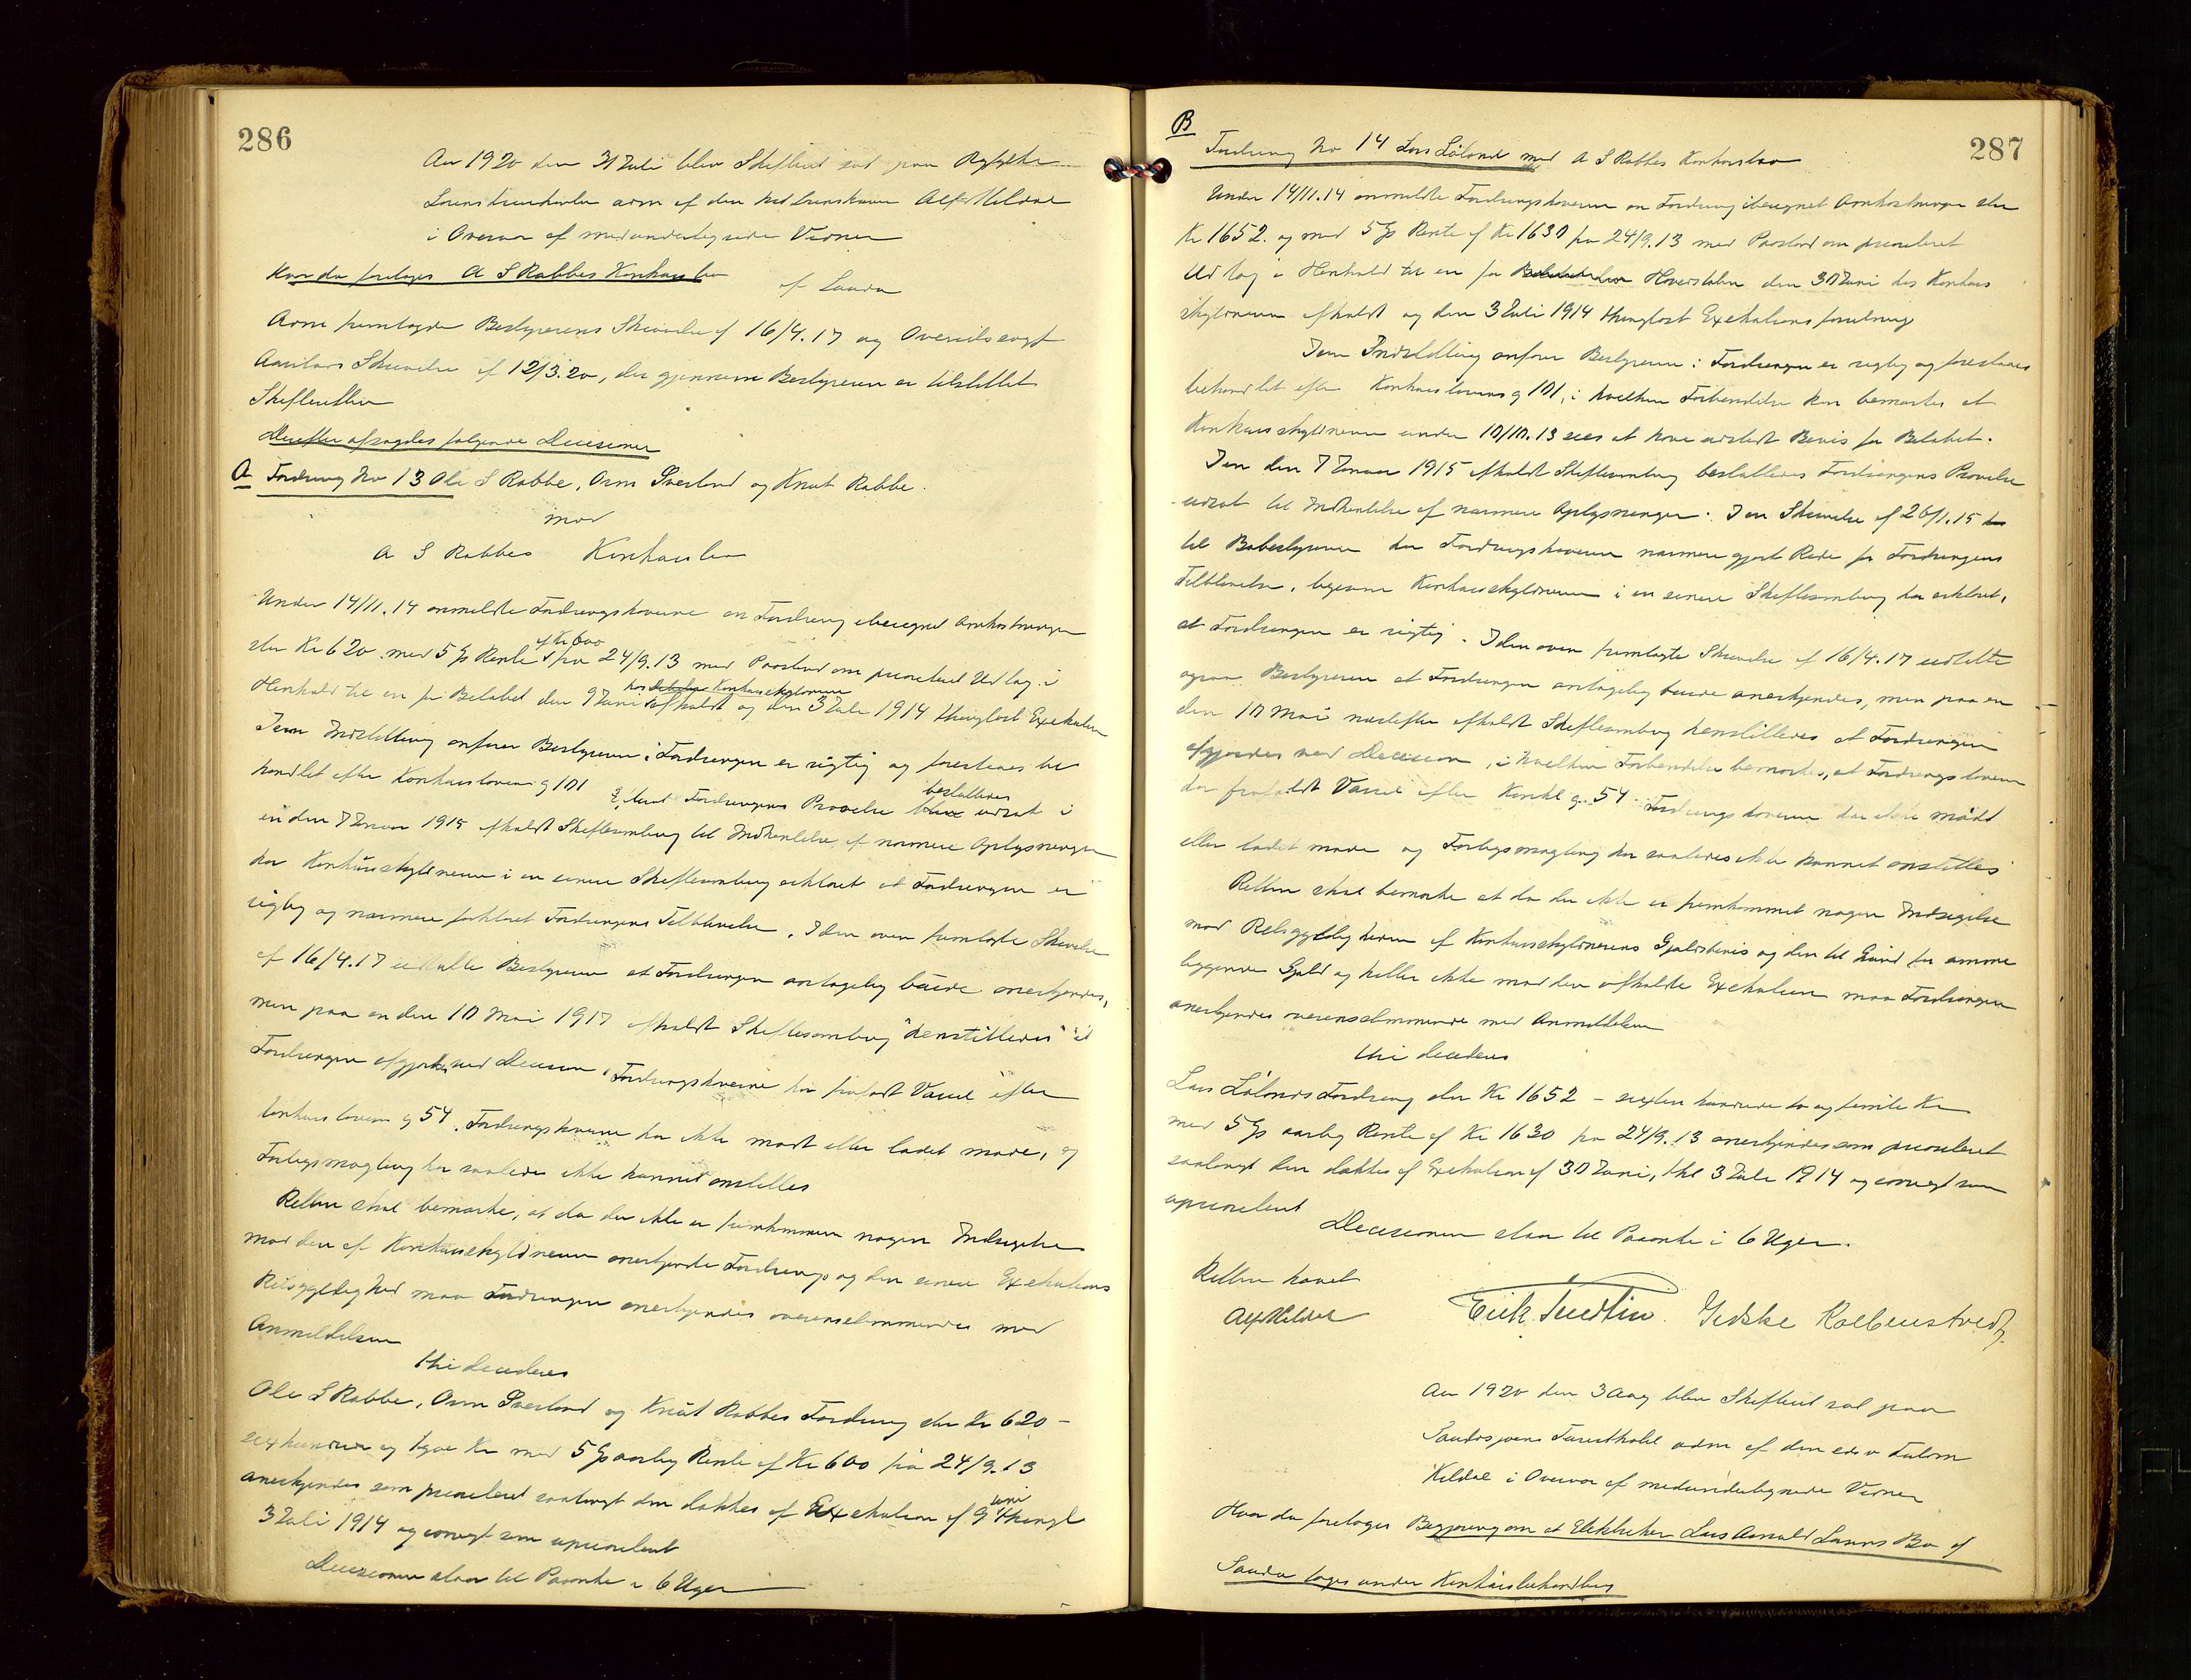 286
Aar 1920 den 31 Juli blev Skifteret sat paa Ryfylke
Sorenskriverkontor adm af den kst Sorenskriver Alf Kildal
i Overvær af medundertegnede Vidner
Hvor da foretoges A S Rabbes Konkursbo
af Sauda
Adm fremlagde Bestyrerens Skrivelse af 16/4.17 og Overretssagf
Skrivelse af 12/3.20, der gjennem Bestyreren er tilstillet
Skifteretten
Derefter afsagdes følgende Decisioner
A Fordring No 13 Ole S Rabbe, Arne Sverland og Knut Rabbe
mod
A S Rabbes Konkursbo
Under 14/11.14 anmeldte Fordringshaverne en Fordring iberegnet Omkostninger
stor Kr 620 med 5 % Rente af Kr 600 fra 24/9.13 med Paastand om prioriteret Udlæg i
Henhold til en for Beløbet den 9 Juni hos Konkursskyldneren afholdt og den 3 Juli 1914 thinglæst Exekution
I sin Indstilling anfører Bestyreren: Fordringen er rigtig og foreslaaes be
handlet efter Konkursloven § 101 Fordringens Prøvelse blev besluttedes udsat i
en den 7 Januar 1915 afholdt Skiftesamling til Indhentelse af nærmere Oplysninger
har Konkursskyldneren i en senere Skiftesamling erklæret at Fordringen er
rigtig og nærmere forklaret Fordringens Tilblivelse. I den oven fremlagte Skrivelse
af 16/4.17 udtalte Bestyreren at Fordringen antagelig burde anerkjendes,
men paa en den 10 Mai 1917 afholdt Skiftesamling "henstilledes" at
Fordringen afgjordes ved Decision. Fordringshaverne har faaet Varsel efter
konkursloven § 54. Fordringshaverne har ikke mødt eller ladet møde, og
Forligsmægling har saaledes ikke kunnet anstilles
Retten skal bemærke, at da der ikke er fremkommen nogen Indsigelse
mod den af Konkursskyldneren anerkjendte Fordring og den senere Exekutions
Retsgyldighed maa Fordringen anerkjendes overensstemmende med
Anmeldelsen
thi decideres
Ole S Rabbe, Arne Sverland og Knut Rabbes Fordring stor Kr 620 -
sexhundrede og tyve Kr med 5 % aarlig Rente af Kr 600 fra 24/9.13
anerkjendes som prioriteret saalangt den dækkes af Exekution af 9 Juni thingl
3 Juli 1914 og iøvrigt som uprioriteret
Decisionen staar til Paaanke i 6 Uger
287
B
Fordring No 14 Lars Løland mod A S Rabbes Konkursbo
Under 14/11.14 anmeldte Fordringshaveren en Fordring iberegnet Omkostninger stor
Kr 1652. og med 5 % Rente af Kr 1630 fra 24/9.13 med Paastand om prioriteret
Udlæg i Henhold til en for Hovedstolen den 30 Juni hos Konkurs
skyldneren afholdt og den 3 Juli 1914 thinglæst Exekutionsforretning
I sin Indstilling anfører Bestyreren: Fordringen er rigtig og foreslaaes
behandlet efter Konkurslovens § 101, i hvilken Forbindelse kan bemærkes at
Konkursskyldneren under 10/10.13 sees at have udstedt Bevis for Beløbet.
I en den 7 Januar 1915 afholdt Skiftesamling besluttedes Fordringens Prøvelse
udsat til Indhentelse af nærmere Oplysninger. I en Skrivelse af 26/1.15
til Bobestyreren har Fordringshaveren nærmere gjort Rede for Fordringens
Tilblivelse, ligesom Konkursskyldneren i en senere Skiftesamling har erklæret,
at Fordringen er rigtig. I den oven fremlagte Skrivelse af 16/4.17 udtalte
ogsaa Bestyreren at Fordringen antagelig burde anerkjendes, men paa en
den 10 Mai næstefter afholdt Skiftesamling henstilledes at Fordringen
afgjordes ved Decision, i hvilken Forbindelse bemærkes, at Fordringshaveren
har faaet Varsel efter Konkl § 54 Fordringshaveren har ikke mødt
eller ladet møde og Forligsmægling har saaledes ikke kunnet anstilles
Retten skal bemærke at da der ikke er fremkommet nogen Indsigelse
mod Retsgyldigheden af Konkursskyldnerens Gjældsbevis og den til Grund for samme
liggende Gjæld og heller ikke mod den afholdte Exekution maa Fordringen
anerkjendes overensstemmende med Anmeldelsen
thi decideres
Lars Lølands Fordring stor Kr 1652 - sexten hundrede to og femti Kr
med 5 % aarlig Rente af Kr 1630 fra 24/9.13 anerkjendes som prioriteret
saalangt den dækkes af Exekution af 30 Juni, thl 3 Juli 1914 og iøvrigt som
uprioriteret
Decisionen staar til Paaanke i 6 Uger.
Retten hævet
Alf Kildal Erik Tuedtin Gidske Kolbenstvedt
Aar 1920 den 3 Aug blev Skifteret sat paa
Saudasjøens Turisthotel adm af den edsv Fuldm
Kildal i Overvær af medundertegnede Vidner
Hvor da foretoges Begjæring om at Elektriker Lars Arnold Larsens Bo af
Sauda tages under Konkursbehandling